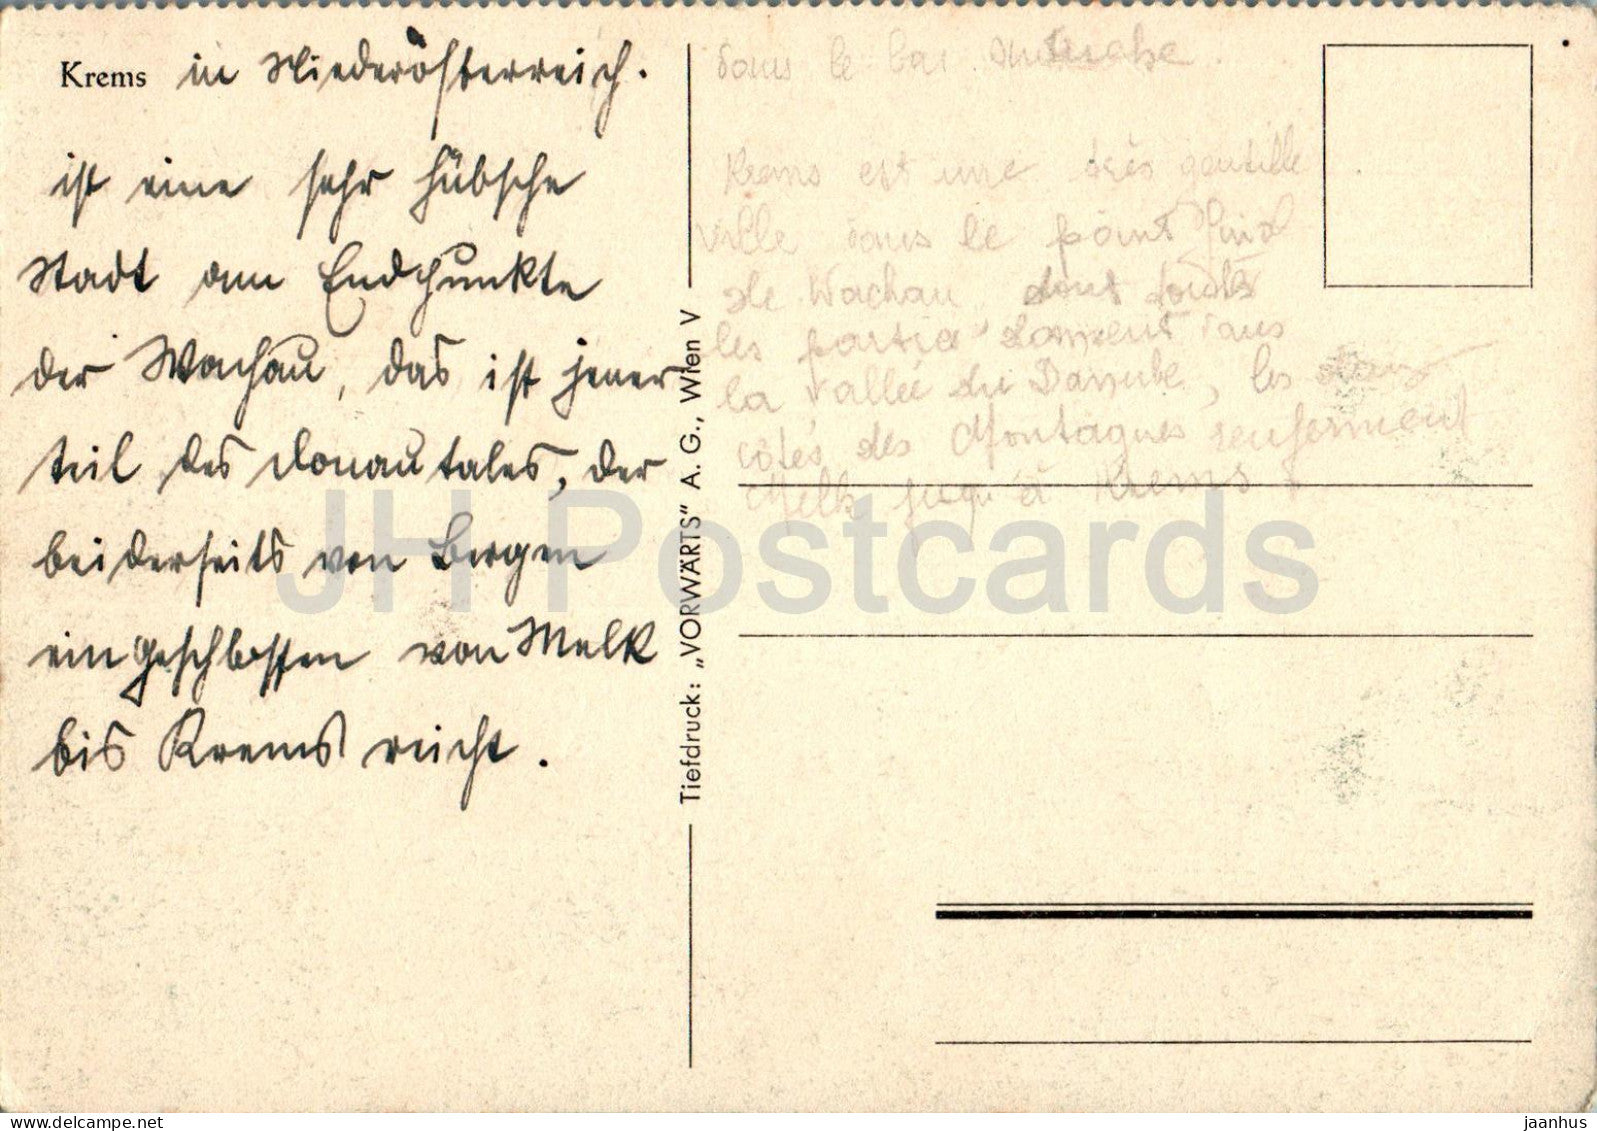 Krems in Niederösterreich.
ist eine sehr hübsche
Stadt am Endpunkte
der Wachau, das ist jener
teil des Donautales, der
beiderseits von Bergen
eingeschlossen von Melk
bis Krems reicht.
Tiefdruck: „VORWÄRTS" A. G., Wien V
dans le bas
Krems est une très gentille
ville dans le point final
de Wachau dont
les partie dans
la Vallée du Danube, les
côtés des Montagnes renferment
Melk jusqu'à Krems
JH Postcards
jaanhus